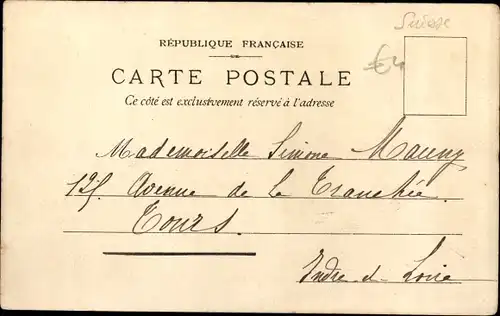 Suisse
RÉPUBLIQUE FRANÇAISE
CARTE POSTALE
Ce côté est exclusivement réservé à l'adresse
Mademoiselle Simone Mauny
125. Avenue de la Tranchée.
Tours.
Indre et Loire